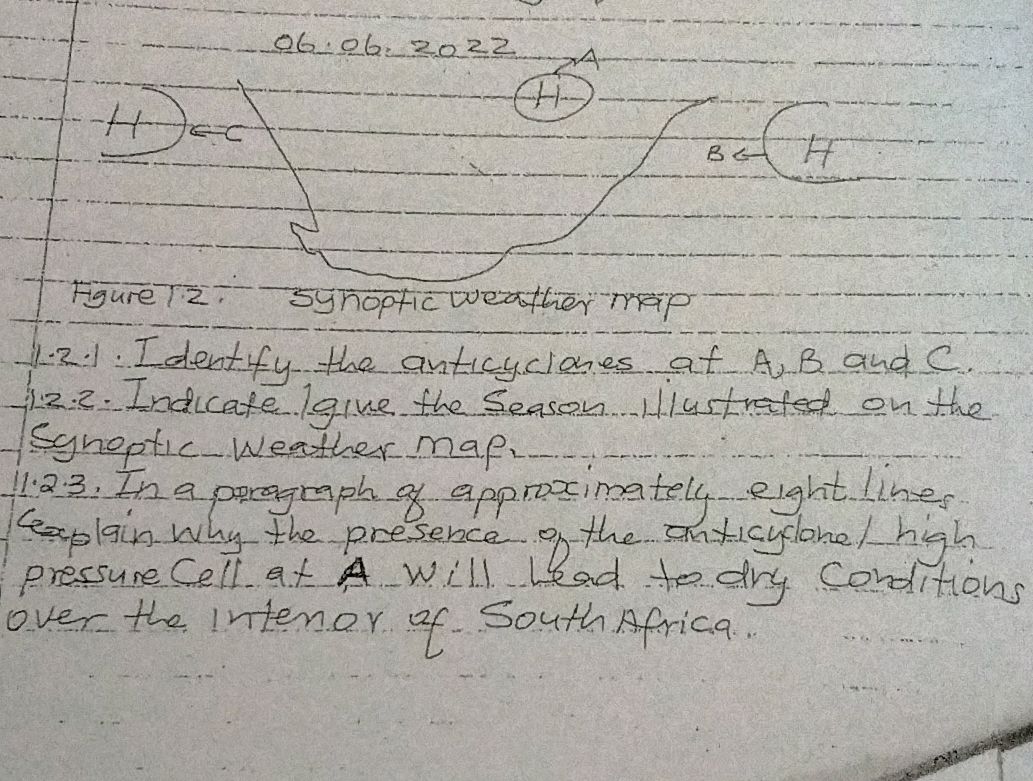 06.06.2022
A
H
H
C
B
H
Figure 1.2. Synoptic weather map
1.2.1. Identify the anticyclones at A, B and C.
1.2.2. Indicate/give the Season illustrated on the
Synoptic Weather map.
1.2.3. In a paragraph of approximately eight lines
explain why the presence of the anticyclone/high
pressure Cell at A will lead to dry Conditions
over the interior of South Africa.